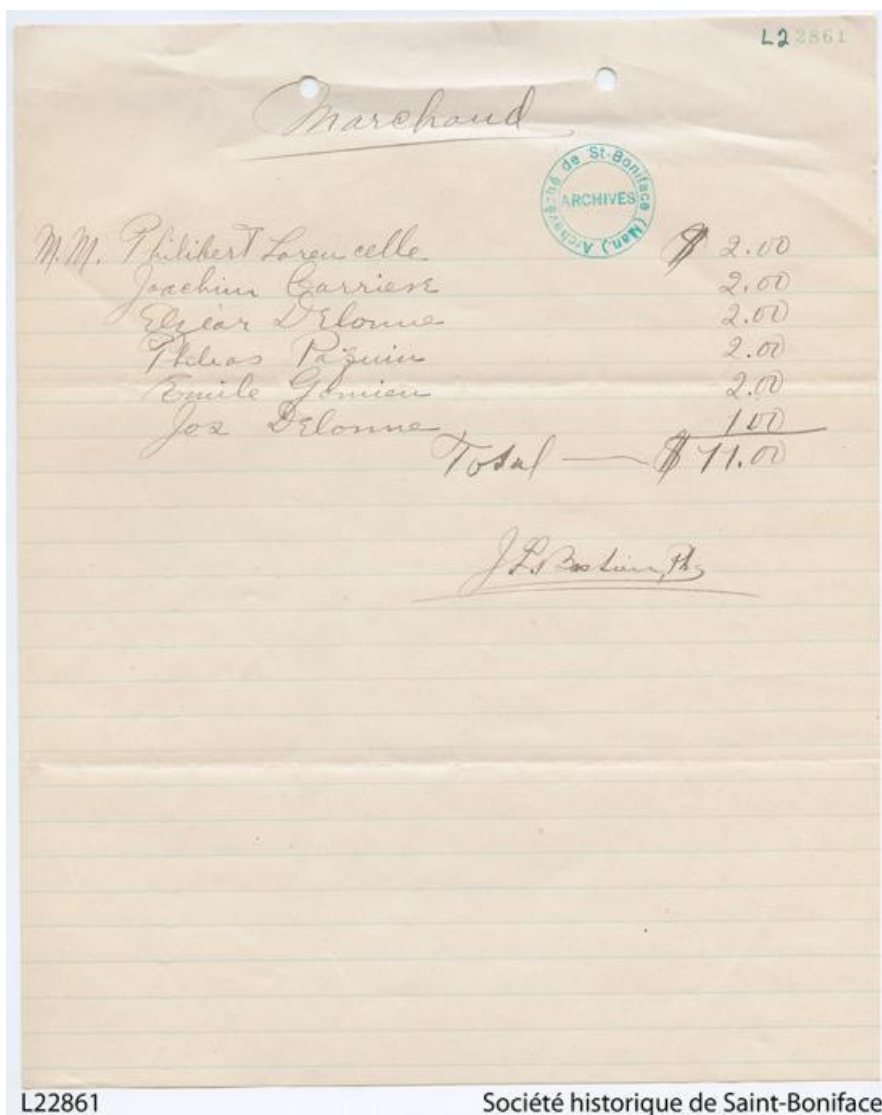 L22861
Marchand
Archevêché de St-Boniface (Man.)
ARCHIVES
M.M. Philibert Lorencelle $ 2.00
Joachim Carriere 2.00
Elzéar DElorme 2.00
Phileas Paquin 2.00
Emile Gomieu 2.00
Jos DElorme 1.00
Total — $ 11.00
J. L. Bastien, Ph
L22861 Société historique de Saint-Boniface